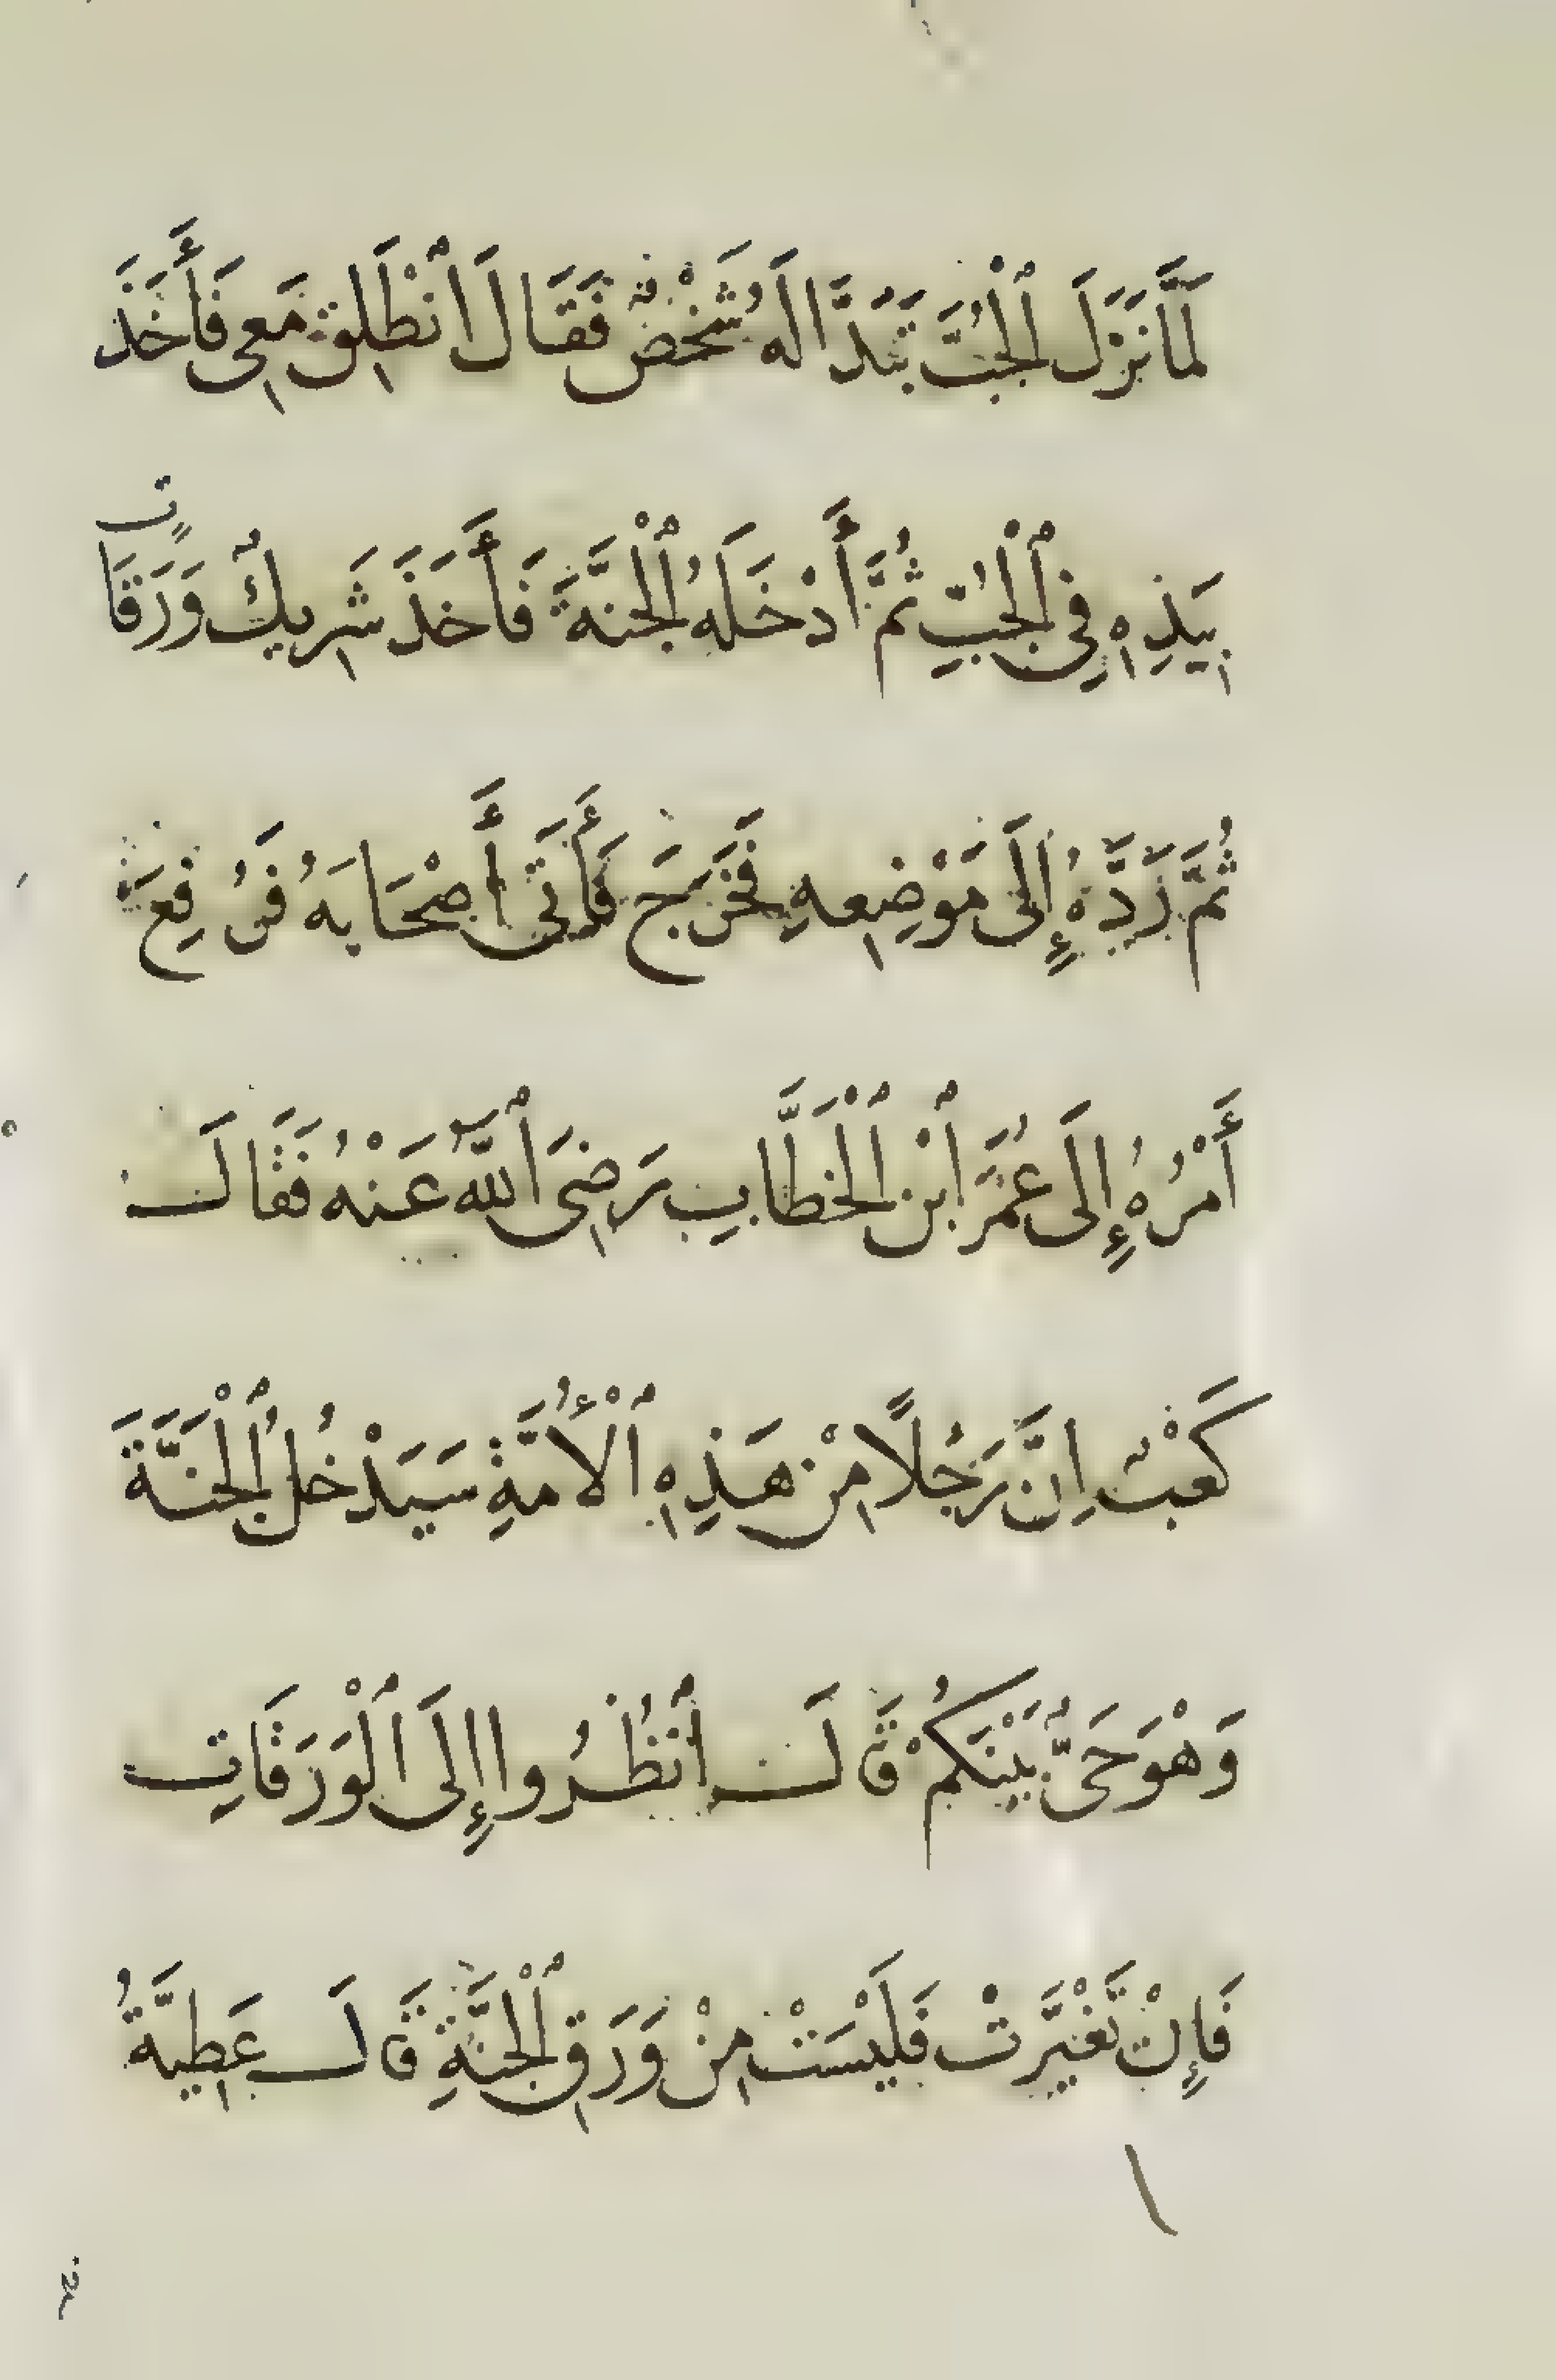 لَمَّا نَزَلَ ٱلْجُبَّ تَبَدَّا لَهُ شَخْصٌ فَقَالَ ٱنْطَلِقْ مَعِي فَأَخَذَ
بِيَذِهِ فِي ٱلْجُبِّ ثُمَّ أَدْخَلَهُ ٱلْجَنَّةَ فَأَخَذَ شَرِيكٌ وَرَقَاتٍ
ثُمَّ رَدَّهُ إِلَى مَوْضِعِهِ فَخَرَجَ فَأَتَى أَصْحَابَهُ فَرُفِعَ
أَمْرُهُ إِلَى عُمَرَ ٱبْنِ ٱلْخَطَّابِ رَضِيَ ٱللَّهُ عَنْهُ فَقَالَ
كَعْبٌ اِنَّ رَجُلًا مِنْ هَذِهِ ٱلْأُمَّةِ سَيَدْخُلُ ٱلْجَنَّةَ
وَهْوَ حَيٌّ بَيْنَكُمْ قَالَ ٱنْظُرُوا إِلَى ٱلْوَرَقَاتِ
فَإِنْ تَغَيَّرَتْ فَلَيْسَتْ مِنْ وَرَقِ ٱلْجَنَّةِ قَالَ عَطِيَّةُ